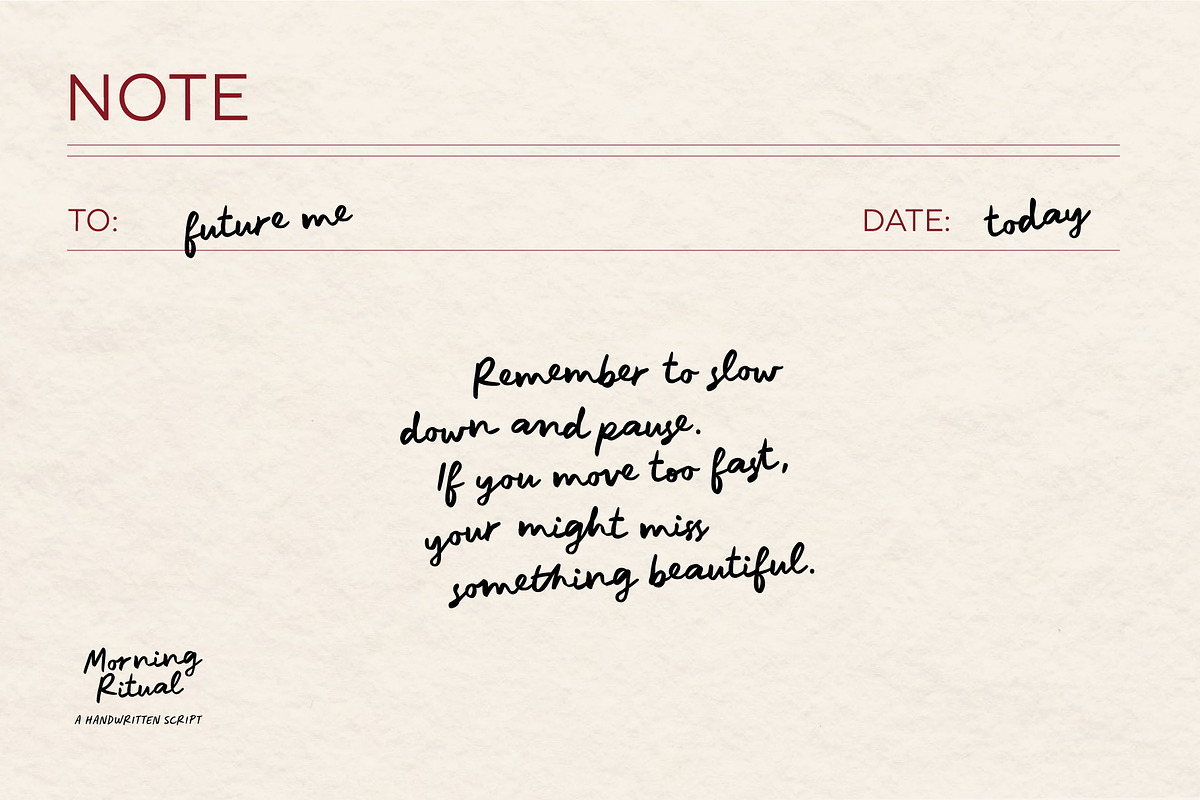 NOTE
TO: future me DATE: today
Remember to slow
down and pause.
If you move too fast,
your might miss
something beautiful.
Morning
Ritual
A HANDWRITTEN SCRIPT